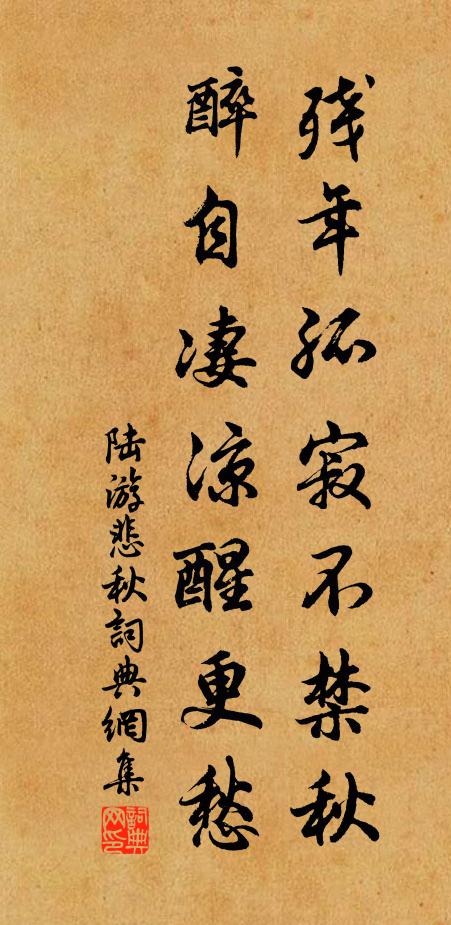 残年孤寂不禁秋
醉自凄涼醒更愁
陆游悲秋詞典網集
詞典网印